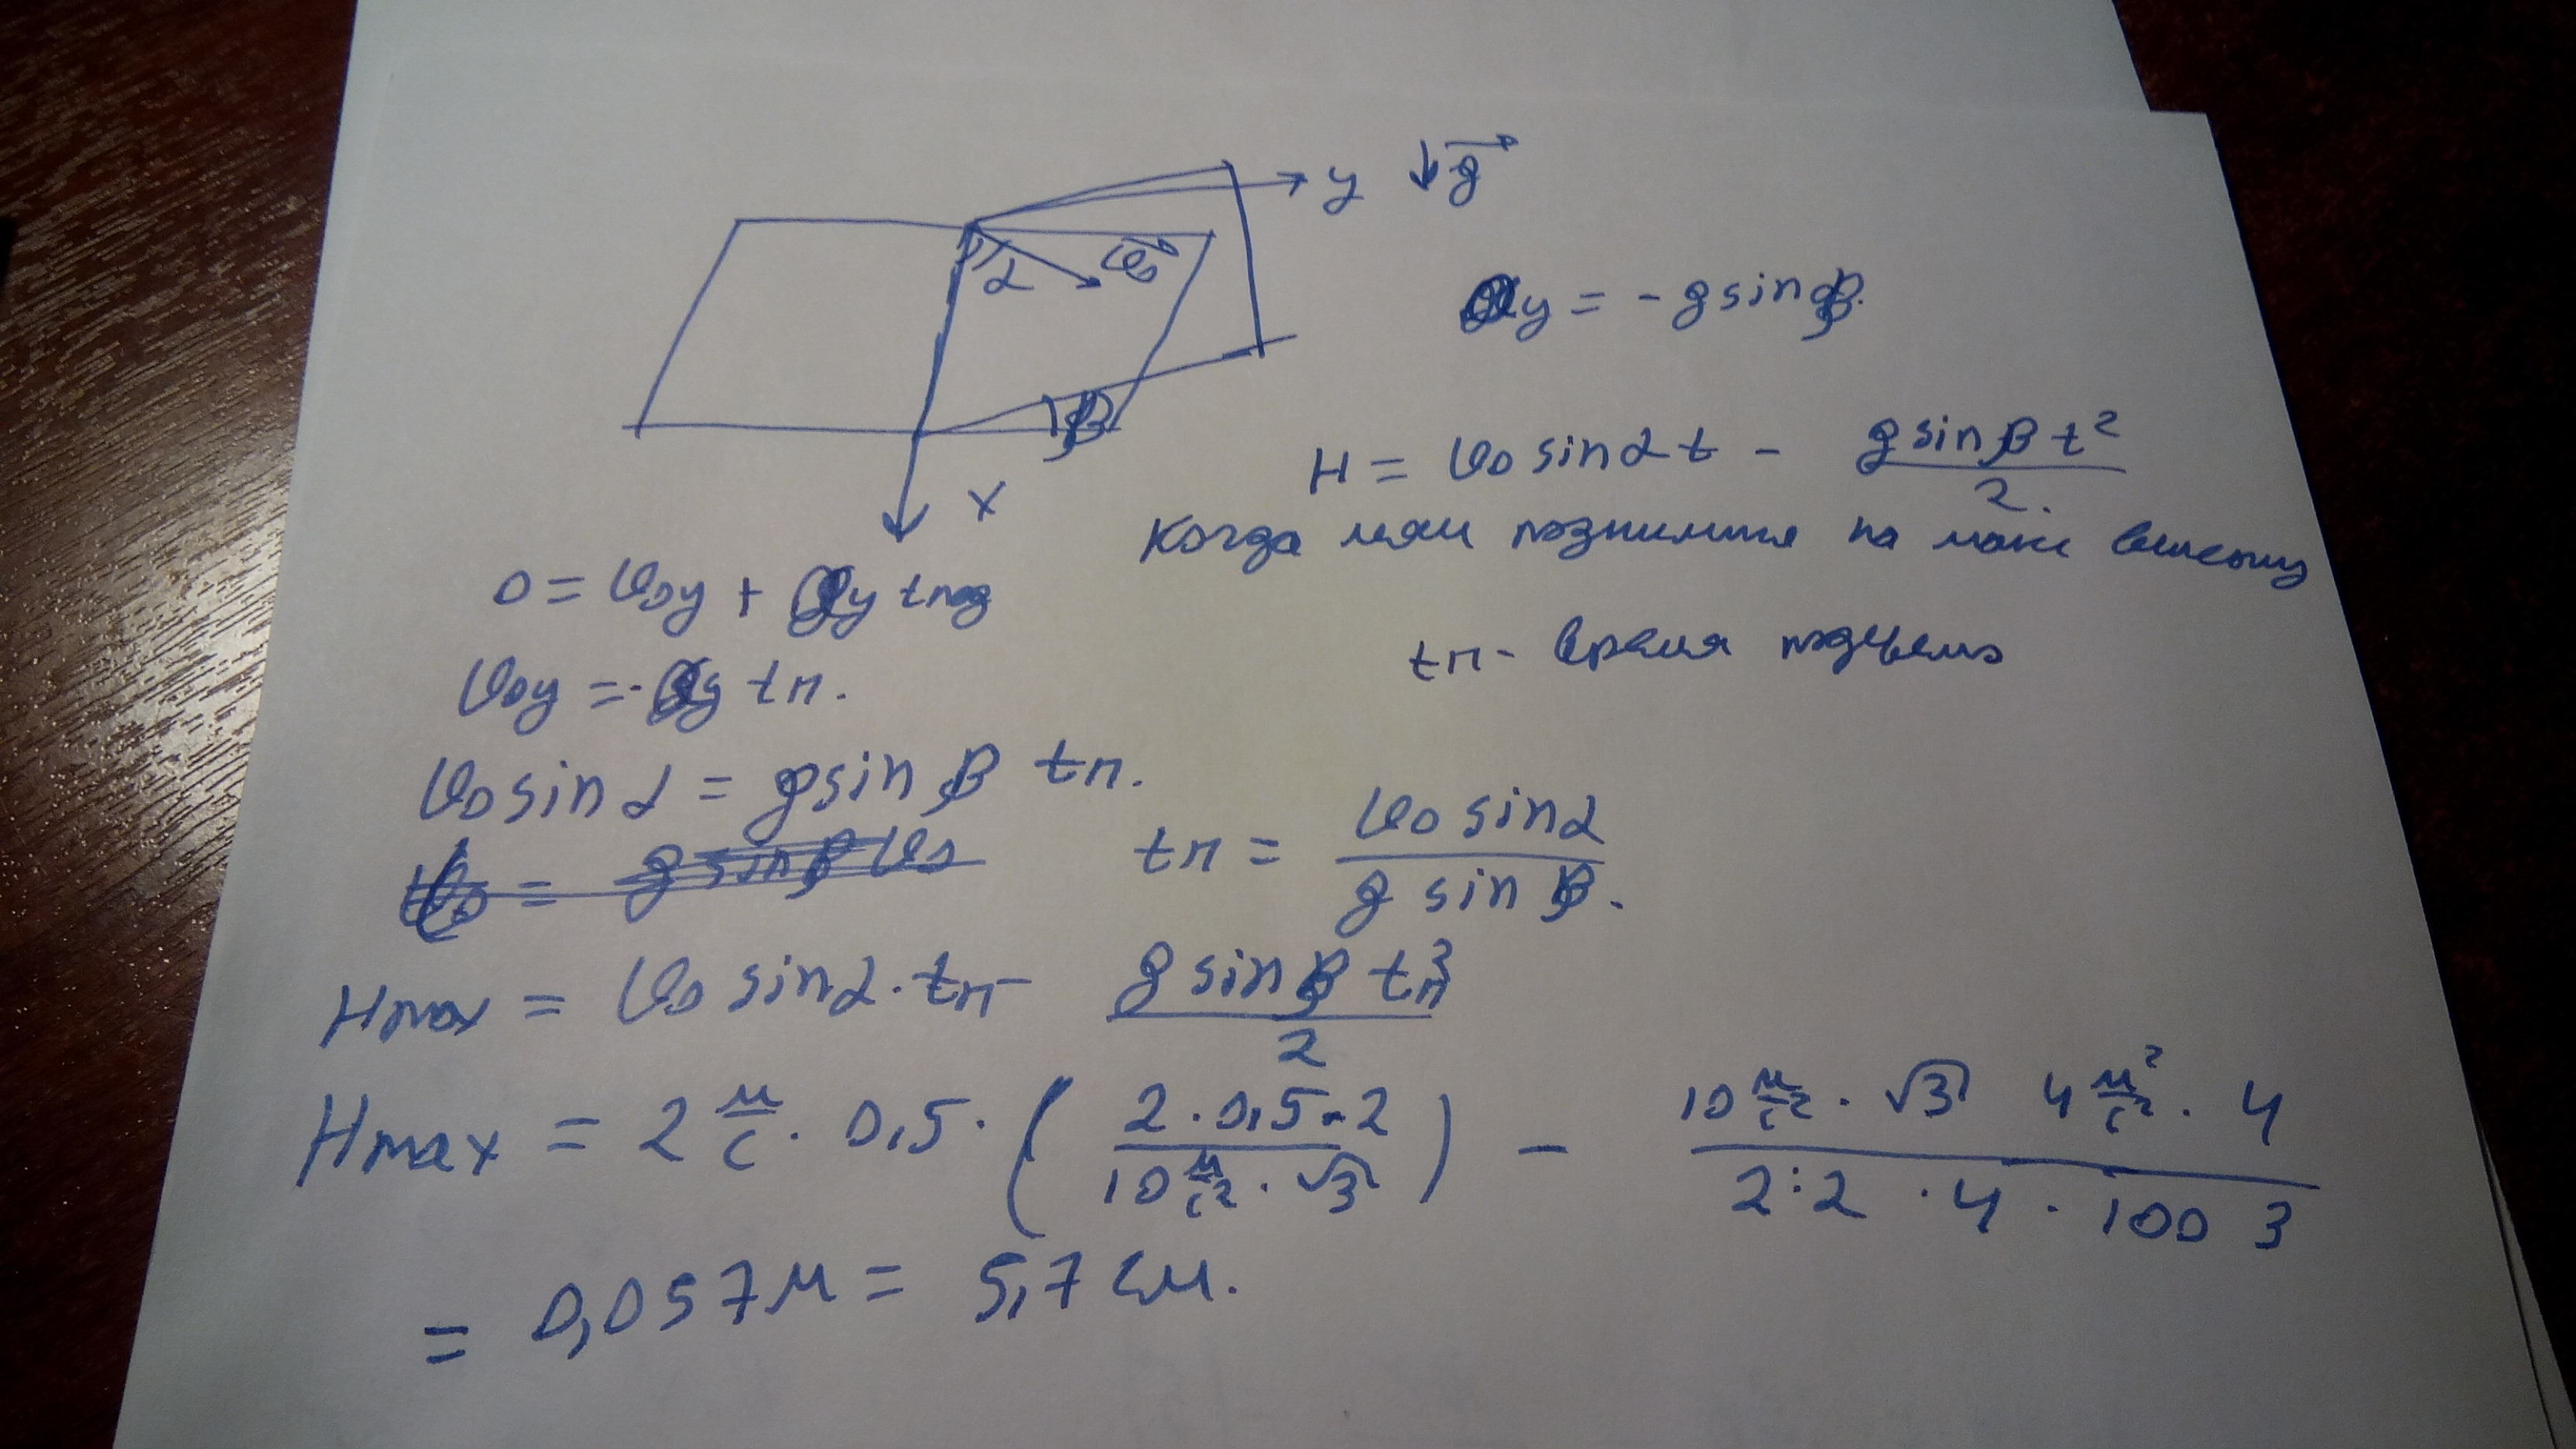 y ↓g⃗
α v⃗₀
ay = -g sin β.
β
H = v₀ sin α t - g sin β t² / 2.
x
Когда мяч поднимится на макс высоту
0 = v₀y + ay tпод
tп - время подъема
v₀y = -ay tп.
v₀ sin α = g sin β tп.
tп = v₀ sin α / g sin β.
Hmax = v₀ sin α · tп - g sin β tп² / 2
Hmax = 2 м/с · 0,5 · ( 2 · 0,5 · 2 / 10 м/с² · √3 ) - 10 м/с² · √3 4 м²/с² · 4 / 2 · 2 · 4 · 100 3
= 0,057 м = 5,7 см.